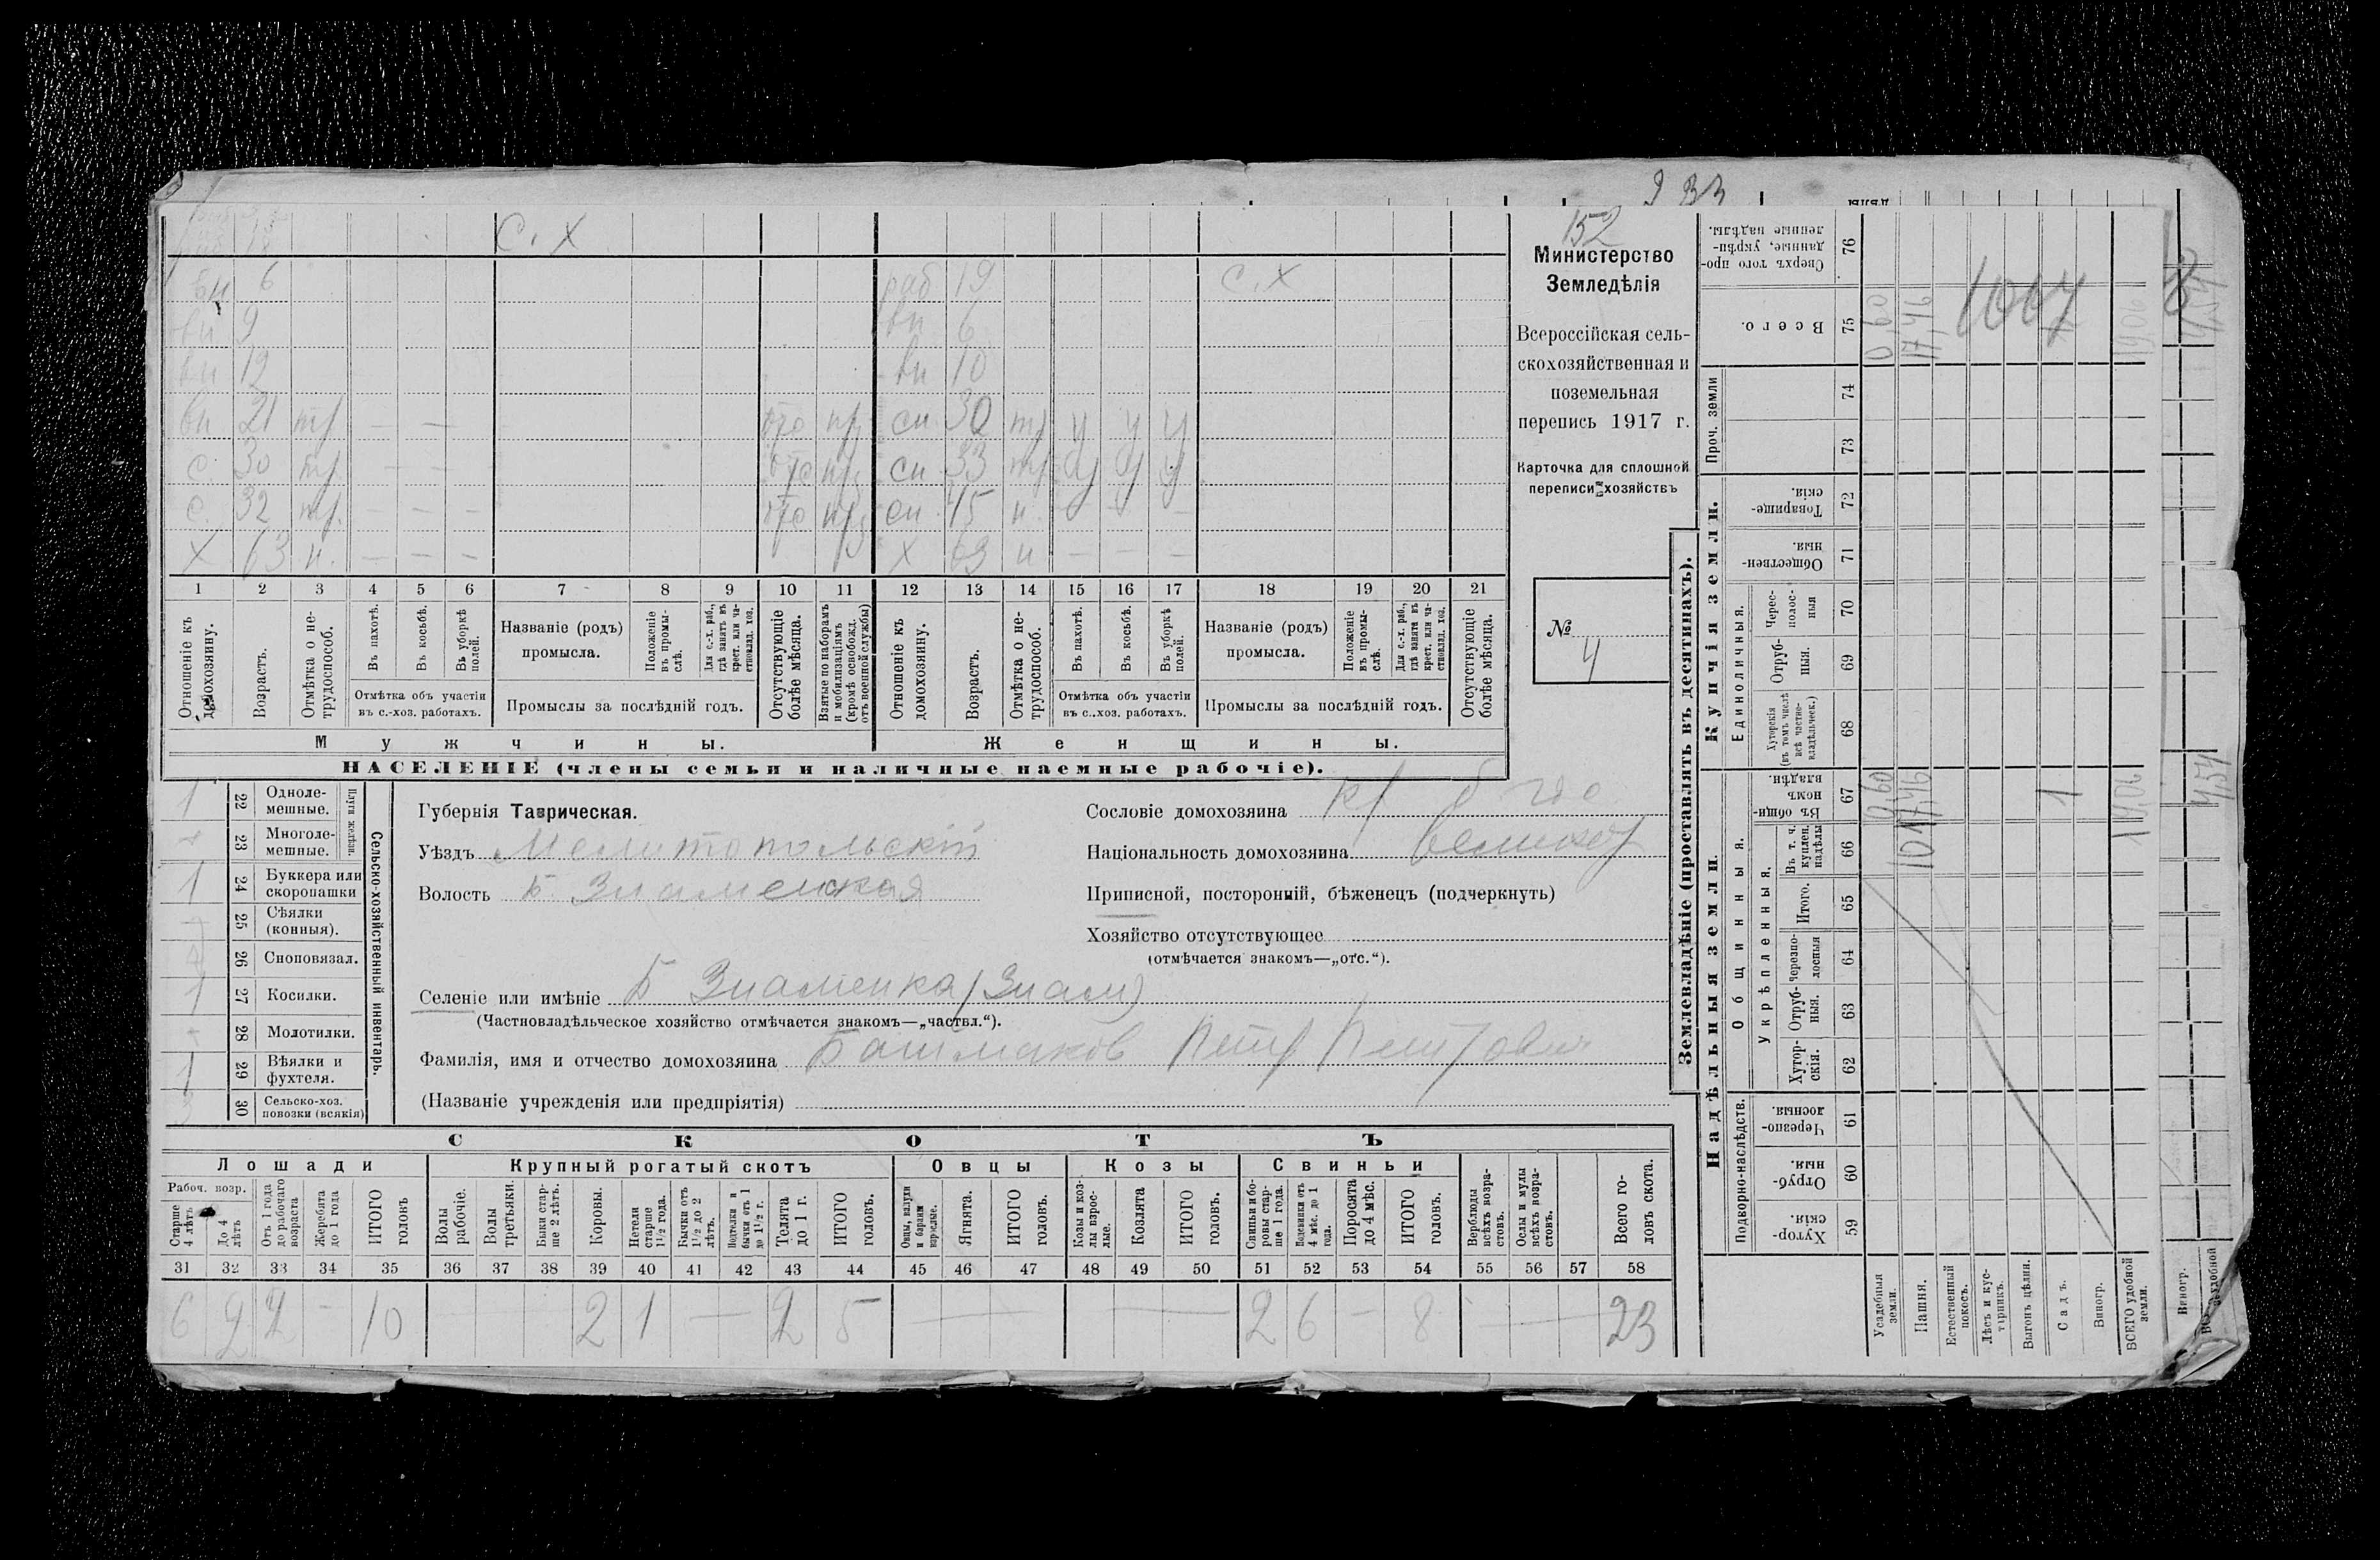 933
152
с. х
раб 18
вн 6 раб 19 с. х
вн 9 вн 6
вн 19 вн 10
вн 21 тр — — отс пр сн 30 тр у у у
с. 30 тр. — — отс пр сн 33 тр у у у
с. 32 тр. — — — отс пр сн 45 н. — — —
Х 63 н. — — — Х 63 н — — —
1 2 3 4 5 6 7 8 9 10 11 12 13 14 15 16 17 18 19 20 21
Отношеніе къ домохозяину.
Возрастъ.
Отмѣтка о не-
трудоспособ.
Въ пахотѣ.
Въ косьбѣ.
Въ уборкѣ
полей.
Отмѣтка объ участіи
въ с.-хоз. работахъ.
Названіе (родъ)
промысла.
Положеніе
въ промы-
слѣ.
Для с.-х. раб.,
гдѣ занятъ въ
крест. или ча-
стновлад. хоз.
Промыслы за послѣдній годъ.
Отсутствующіе
болѣе мѣсяца.
Взятые по наборамъ
и мобилизаціямъ
(кромѣ освобожд.
отъ военной службы)
Отношеніе къ
домохозяину.
Возрастъ.
Отмѣтка о не-
трудоспособ.
Въ пахотѣ.
Въ косьбѣ.
Въ уборкѣ
полей.
Отмѣтка объ участіи
въ с.-хоз. работахъ.
Названіе (родъ)
промысла.
Положеніе
въ промы-
слѣ.
Для с.-х. раб.,
гдѣ занята въ
крест. или ча-
стновлад. хоз.
Промыслы за послѣдній годъ.
Отсутствующіе
болѣе мѣсяца.
Мужчины.
Женщины.
НАСЕЛЕНІЕ (члены семьи и наличные наемные рабочіе).
Министерство
Земледѣлія
Всероссійская сель-
скохозяйственная и
поземельная
перепись 1917 г.
Карточка для сплошной
переписи хозяйствъ
№
4
1 22 Одноле-
мешные.
23 Многоле-
мешные.
Плуги желѣзн.
1 24 Буккера или
скоропашки
25 Сѣялки
(конныя).
26 Сноповязал.
1 27 Косилки.
28 Молотилки.
1 29 Вѣялки и
фухтеля.
30 Сельско-хоз.
повозки (всякія)
Сельско-хозяйственный инвентарь.
Губернія Таврическая.
Уѣздъ Мелитопольскій
Волость Б. Знаменская
Сословіе домохозяина кр
Національность домохозяина великор
Приписной, посторонній, бѣженецъ (подчеркнуть)
Хозяйство отсутствующее
(отмѣчается знакомъ—„отс.“).
Селеніе или имѣніе Б Знаменка (Знам)
(Частновладѣльческое хозяйство отмѣчается знакомъ—„частвл.“).
Фамилія, имя и отчество домохозяина Башмаков Петр Петрович
(Названіе учрежденія или предпріятія)
СКОТЪ
Лошади
Крупный рогатый скотъ
Овцы
Козы
Свиньи
Рабоч. возр.
Старше
4 лѣтъ
До 4
лѣтъ
Отъ 1 года
до рабочаго
возраста
Жеребята
до 1 года
ИТОГО
головъ
Волы
рабочіе.
Волы
третьяки.
Быки стар-
ше 2 лѣтъ.
Коровы.
Нетели
старше
1½ года.
Бычки отъ
1½ до 2
лѣтъ.
Подтелки и
бычки отъ 1
до 1½ г.
Телята
до 1 г.
ИТОГО
головъ.
Овцы, валухи
и бараны
взрослые.
Ягнята.
ИТОГО
головъ.
Козы и коз-
лы взрос-
лые.
Козлята
ИТОГО
головъ.
Свиньи и бо-
ровы стар-
ше 1 года.
Подсвинки отъ
4 мѣс. до 1
года.
Поросята
до 4 мѣс.
ИТОГО
головъ.
Верблюды
всѣхъ возра-
стовъ.
Ослы и мулы
всѣхъ возра-
стовъ.
Всего го-
ловъ скота.
31 32 33 34 35 36 37 38 39 40 41 42 43 44 45 46 47 48 49 50 51 52 53 54 55 56 57 58
6 2 2 - 10 2 1 — 2 5 — — 2 6 — 8 — 23
Землевладѣніе (проставлять въ десятинахъ).
Надѣльныя земли.
Купчія земли.
Проч. земли
Подворно-наслѣдств.
Общинныя.
Укрѣпленныя.
Единоличныя.
Хутор-
скія.
59
Отруб-
ныя.
60
Черезпо-
лосныя.
61
Хутор-
скія.
62
Отруб-
ныя.
63
Черезпо-
лосныя
64
Итого.
65
Въ т. ч.
куплен.
надѣлы
66
Въ общин-
номъ
владѣн.
67
Хуторскія
(въ томъ числѣ
всѣ частно-
владѣльческ.)
68
Отруб-
ныя.
69
Черес-
полос-
ныя
70
Обществен-
ныя.
71
Товарище-
скія.
72
73
74
Всего.
75
Сверхъ того про-
данные, укрѣп-
ленные надѣлы.
76
Усадебныя
земли.
Пашня.
Естественный
покосъ.
Лѣсъ и кус-
тарникъ.
Выгонъ цѣлин.
Садъ.
Виногр.
ВСЕГО удобной
земли.
0,60
17,46
1
19,06
0,60
17,46
1007
19,06
4,54
Виногр.